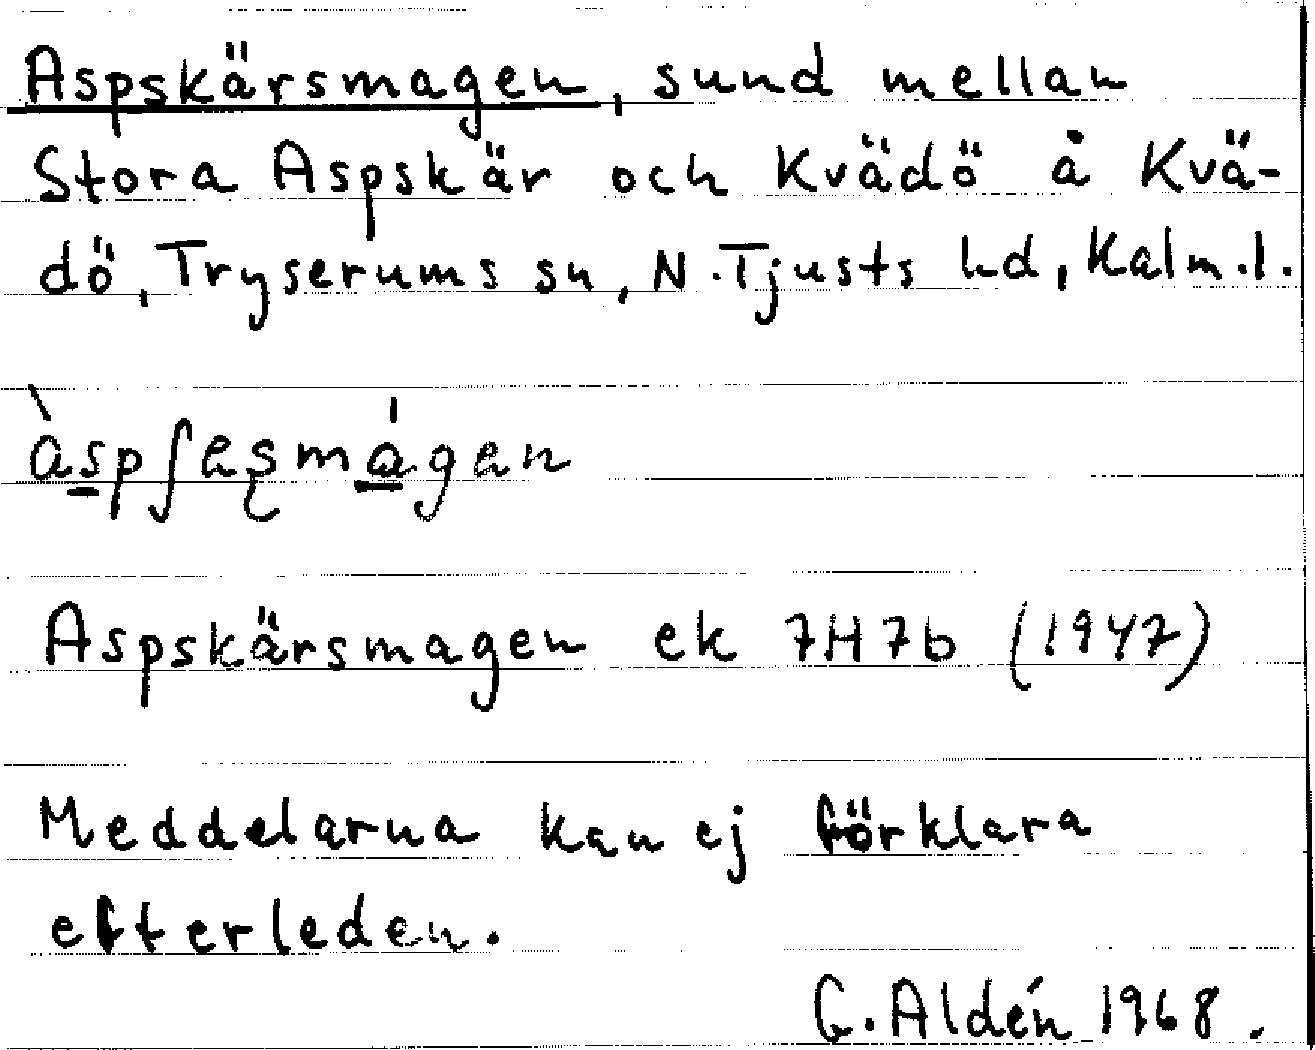 Aspskärsmagen, sund mellan
Stora Aspskär och Kvädö å Kvä-
dö, Tryserums sn, N. Tjusts hd, Kalm. l.
Aspskärsmagen ek 7H7b (1947)
Meddelarna kan ej förklara
efterleden.
G. Aldén 1968.